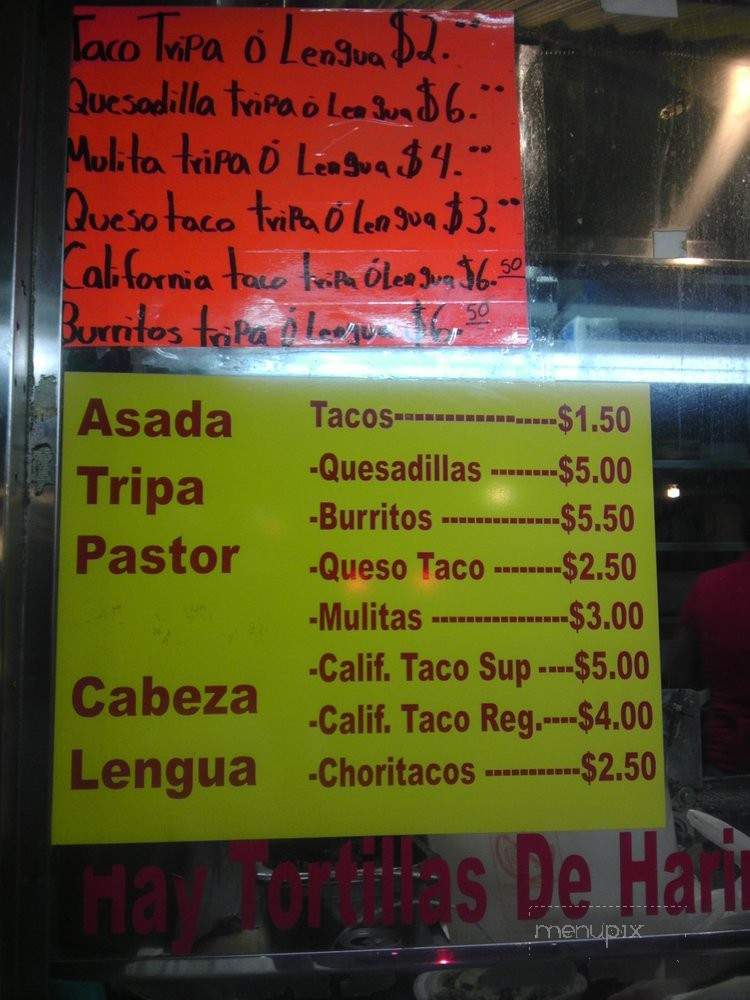 Taco Tripa ó Lengua $2.00
Quesadilla tripa ó Lengua $6.00
Mulita tripa Ó Lengua $4.00
Queso taco tripa Ó Lengua $3.00
California taco tripa Ó Lengua $6.50
Burritos tripa Ó Lengua $6.50
Asada
Tripa
Pastor
Cabeza
Lengua
Tacos-----------------$1.50
-Quesadillas --------$5.00
-Burritos --------------$5.50
-Queso Taco --------$2.50
-Mulitas ----------------$3.00
-Calif. Taco Sup ----$5.00
-Calif. Taco Reg.----$4.00
-Choritacos -----------$2.50
Hay Tortillas De Harin
menupix